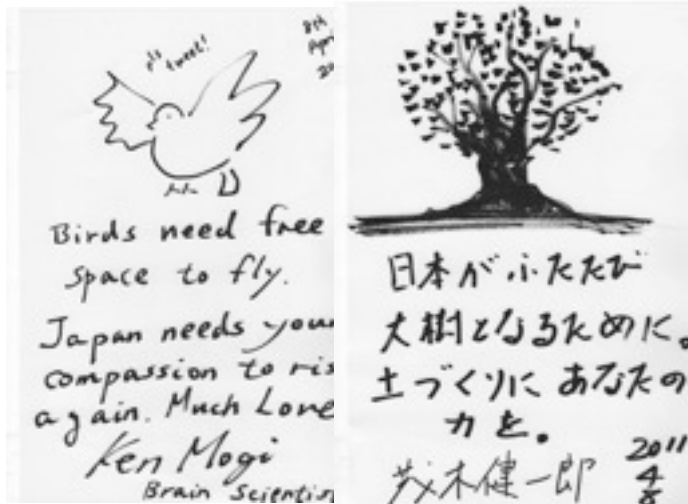 pls tweet!
8th
Birds need free
space to fly.
Japan needs your
compassion to ris
again. Much Love
Ken Mogi
Brain Scientist
日本がふたたび
大樹となるために。
土づくりにあなたの
力を。
茂木健一郎
2011
4
8